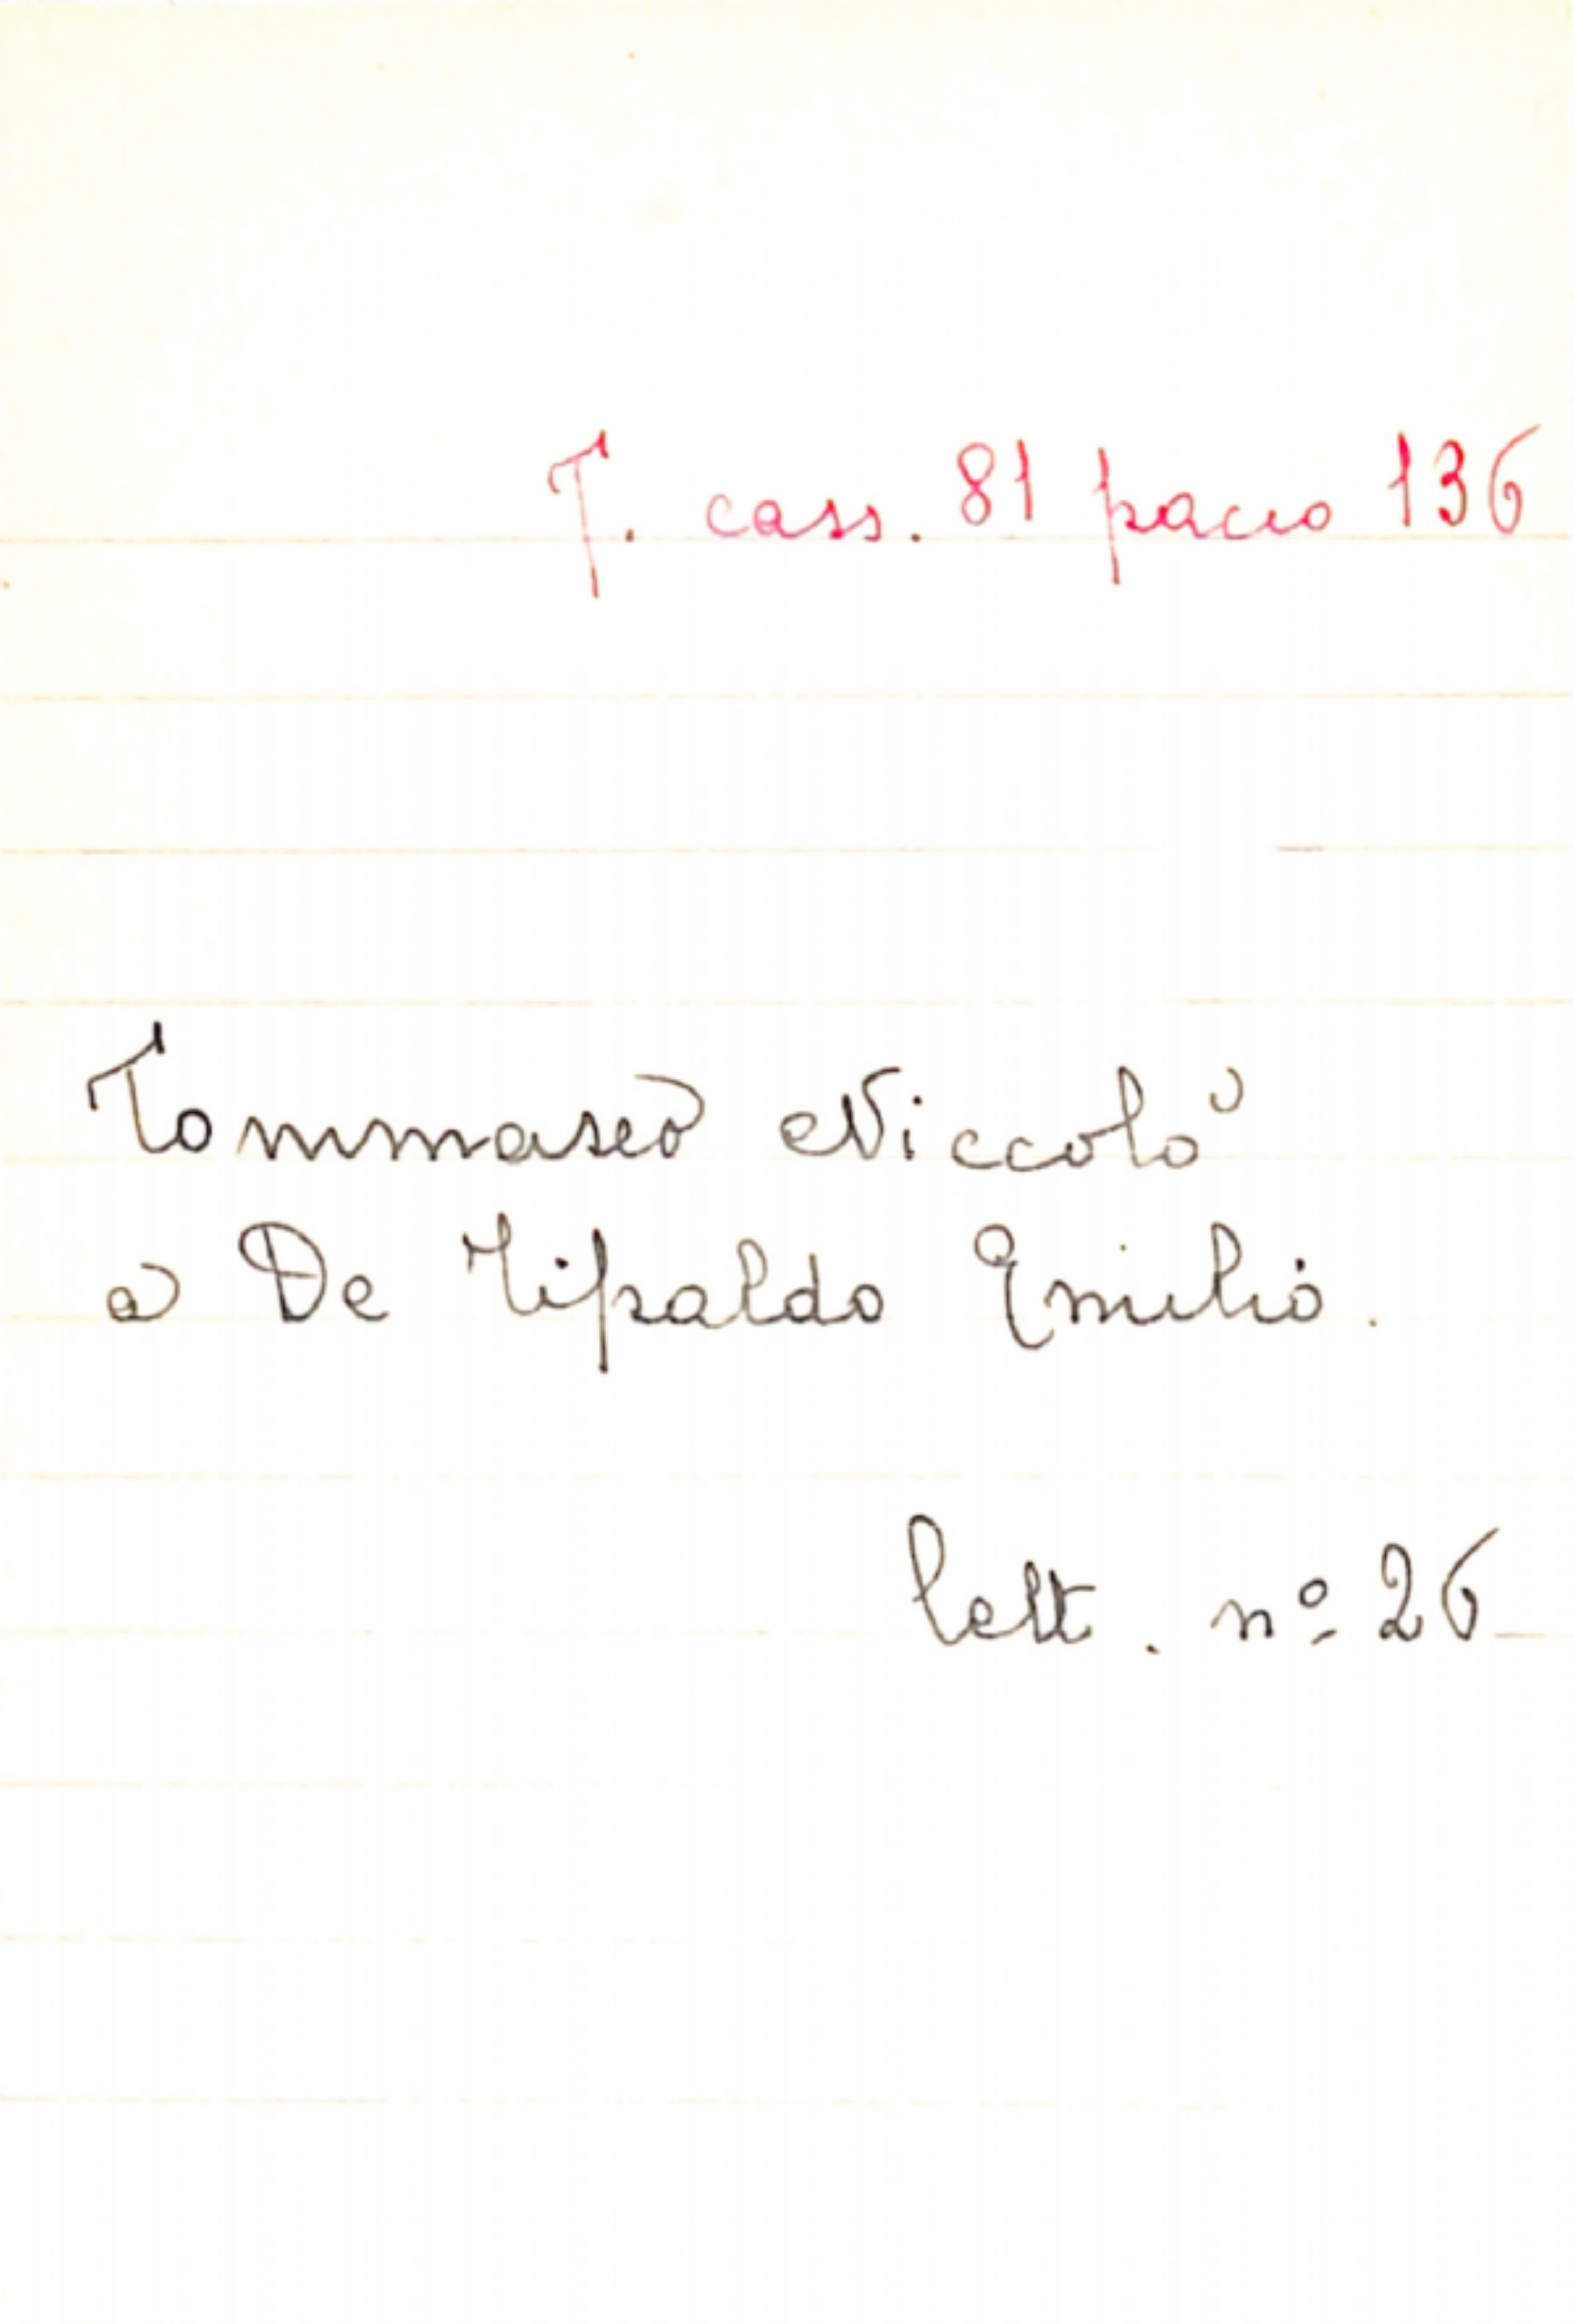 T. cass. 81 pacco 136
Tommaseo Niccolò
a De Tipaldo Emilio.
lett. nº 26